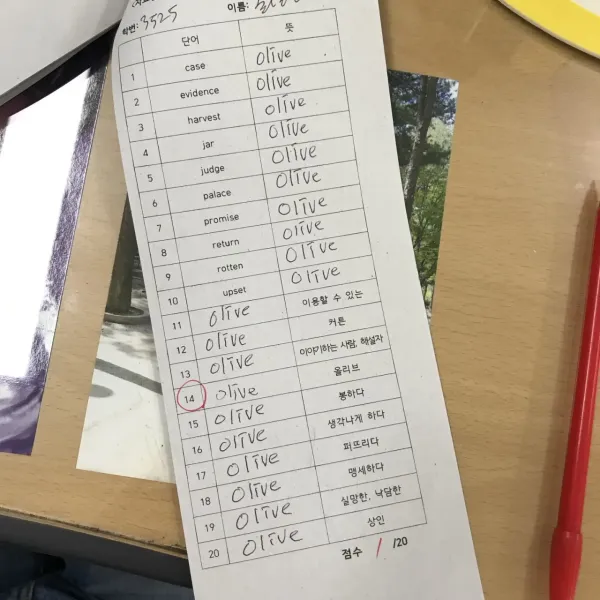 학번: 3525 이름:
단어 뜻
1 case olive
2 evidence olive
3 harvest olive
4 jar olive
5 judge olive
6 palace olive
7 promise olive
8 return olive
9 rotten olive
10 upset olive
11 olive 이용할 수 있는
12 olive 커튼
13 olive 이야기하는 사람, 해설자
14 olive 올리브
15 olive 봉하다
16 olive 생각나게 하다
17 olive 퍼뜨리다
18 olive 맹세하다
19 olive 실망한, 낙담한
20 olive 상인
점수 1 /20